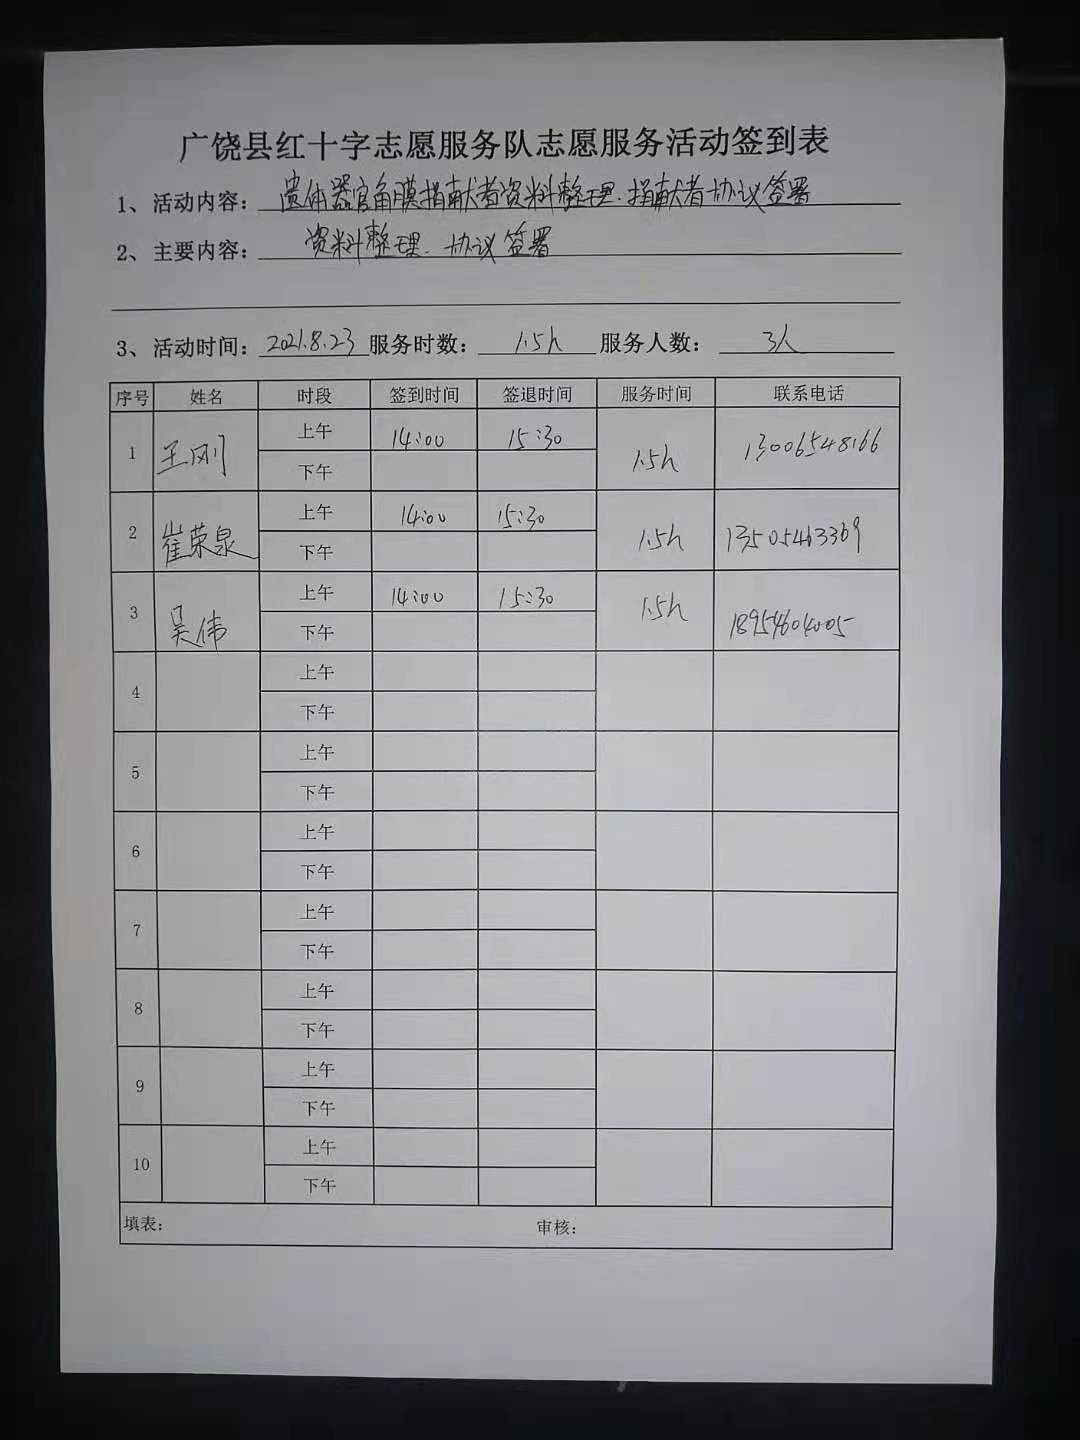 广饶县红十字志愿服务队志愿服务活动签到表
1、活动内容：遗体器官角膜捐献者资料整理.捐献者协议签署
2、主要内容：资料整理.协议签署
3、活动时间：2021.8.23 服务时数：1.5h 服务人数：3人
序号 姓名 时段 签到时间 签退时间 服务时间 联系电话
1 王刚 上午 14:00 15:30 1.5h 13006548166
下午
2 崔荣泉 上午 14:00 15:30 1.5h 13505463369
下午
3 吴伟 上午 14:00 15:30 1.5h 18954604005
下午
4 上午
下午
5 上午
下午
6 上午
下午
7 上午
下午
8 上午
下午
9 上午
下午
10 上午
下午
填表： 审核：